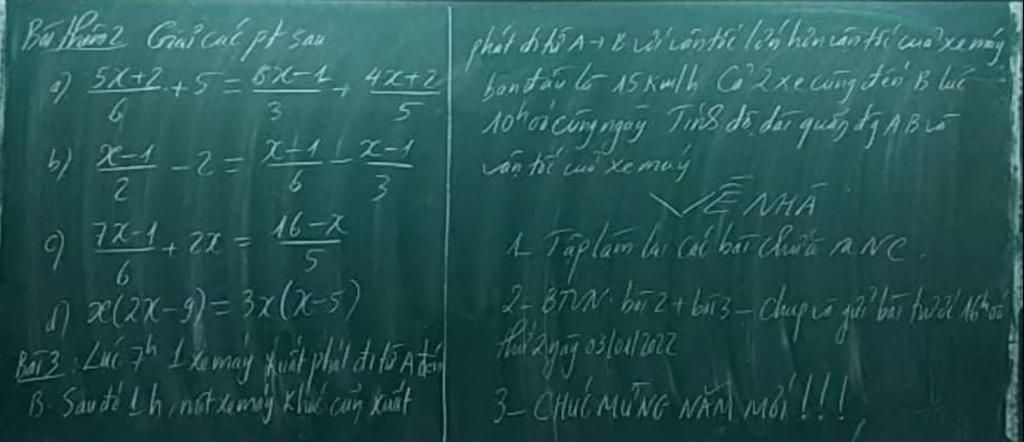 Bài thêm 2 Giải các pt sau
a) (5x+2)/6 + 5 = (8x-1)/3 + (4x+2)/5
b) (x-1)/2 - 2 = (x-1)/6 - (x-1)/3
c) (7x-1)/6 + 2x = (16-x)/5
d) x(2x-9) = 3x(x-5)
Bài 3: Lúc 7h 1 xe máy xuất phát đi từ A đến
B. Sau đó 1h, một xe máy khác cũng xuất
phát đi từ A → B với vận tốc lớn hơn vận tốc của xe máy
ban đầu là 15 km/h Cả 2 xe cùng đến B lúc
10h00 cùng ngày. Tính độ dài quãng đg AB và
vận tốc của xe máy
VỀ NHÀ
1- Tập làm lại các bài chữa NC.
2- BTVN: bài 2 + bài 3 - Chụp và gửi bài trước 16h00
thứ 2 ngày 03/01/2022
3- CHÚC MỪNG NĂM MỚI!!!